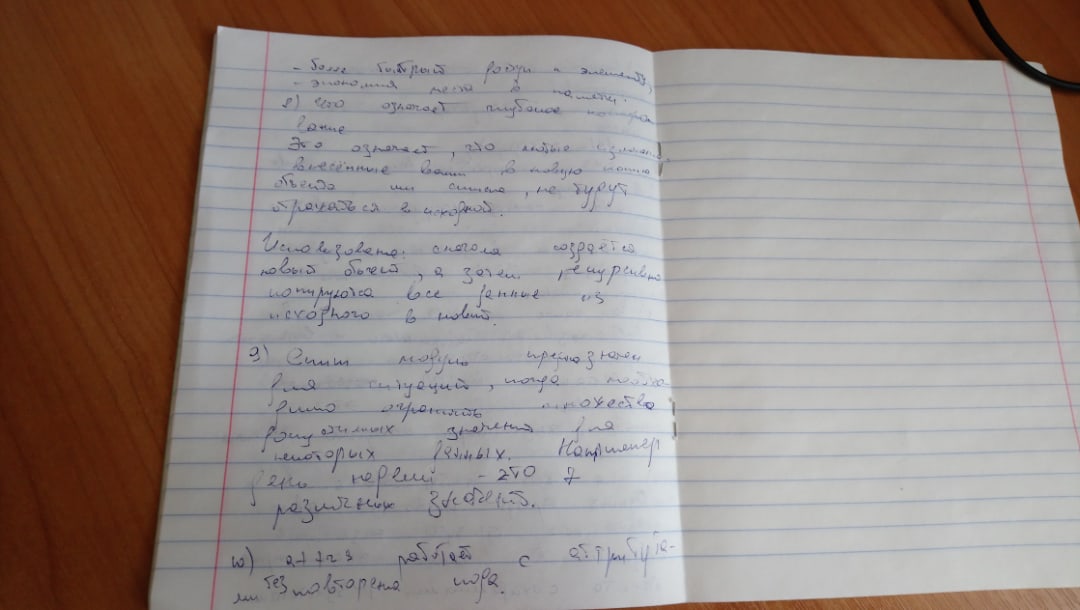 - более быстрый доступ к элементу,
- экономия места в памяти.
8) Что означает глубокое копиро
вание
Это означает, что любые изменени
внесённые вами в новую копию
объекта или списка, не будут
отражаться в исходной.
Использована: сначала создаётся
новый объект, а затем рекурсивно
копируются все данные из
исходного в новый.
9) Enum модуль предназначен
для ситуаций, когда необхо-
димо ограничить множество
допустимых значений для
некоторых данных. Например
день недели - это 7
различных значений.
10) attrs работает с атрибута-
ми без повторения кода.